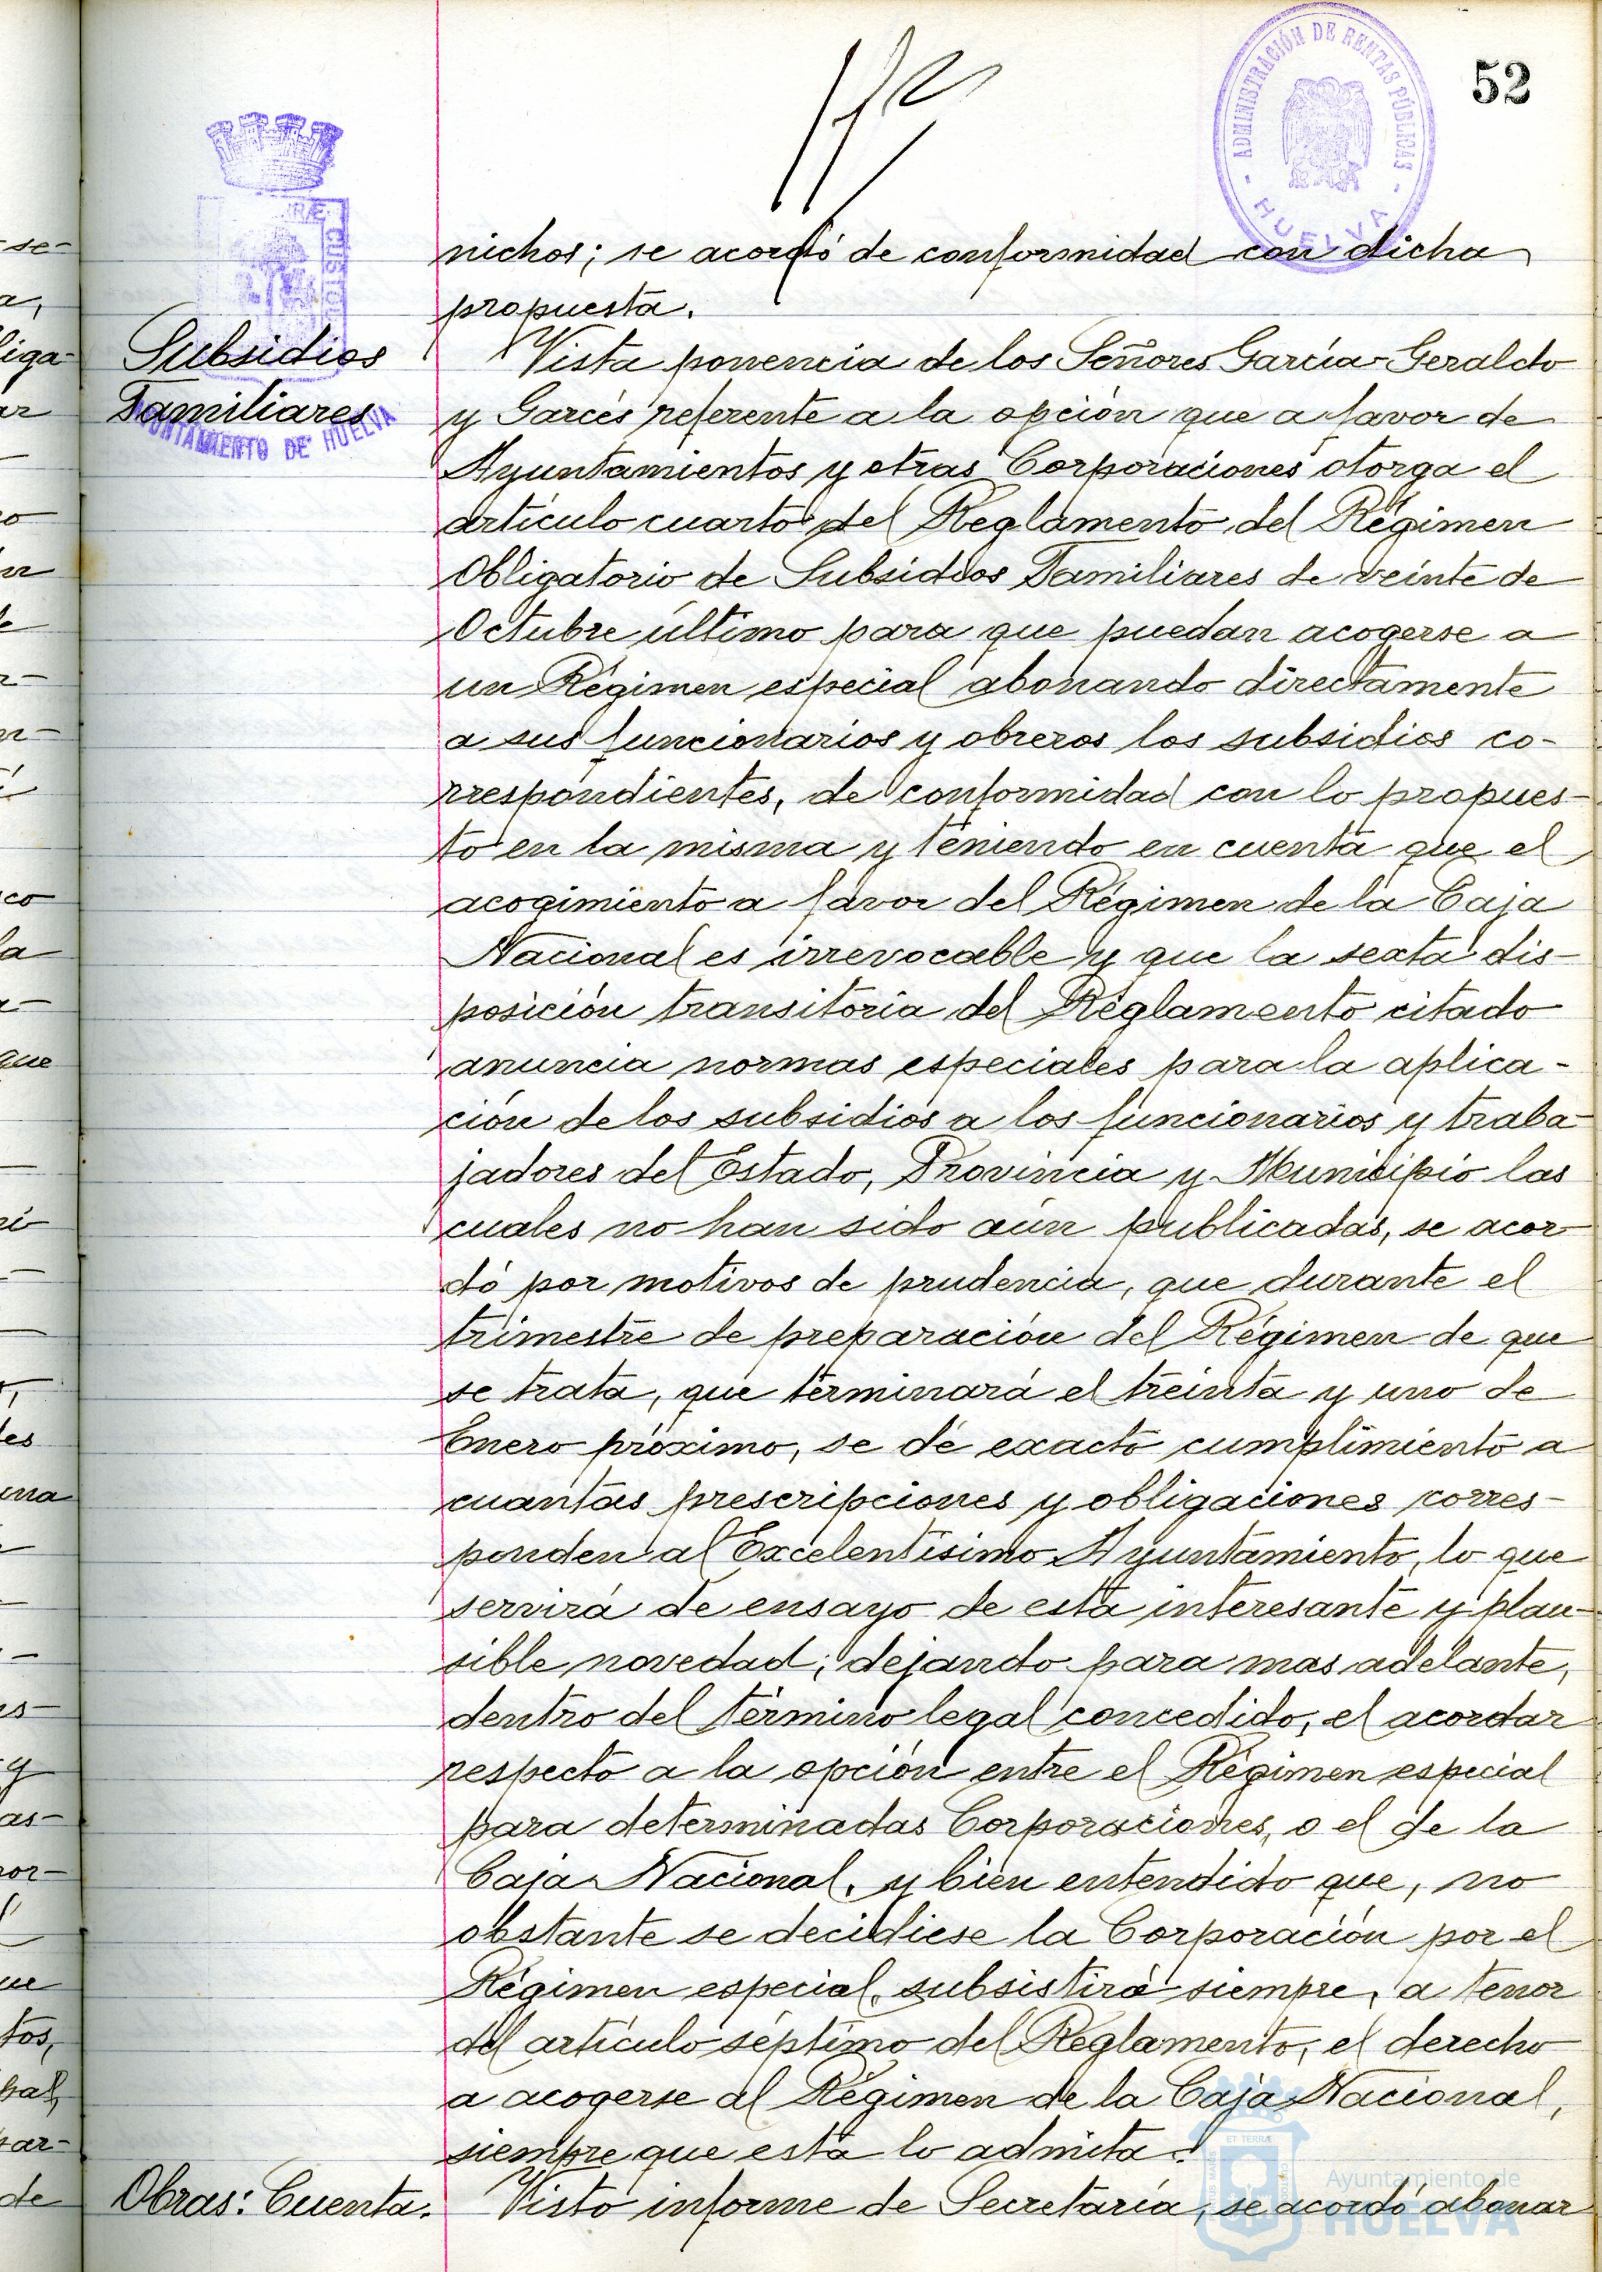 52
ADMINISTRACIÓN DE RENTAS PÚBLICAS
- HUELVA -
CUSTO
AYUNTAMIENTO DE HUELVA
nichos; se acordó de conformidad con dicha
propuesta.
Subsidios
Familiares
Vista ponencia de los Señores García-Geraldo
y Garcés referente a la opción que a favor de
Ayuntamientos y otras Corporaciones otorga el
artículo cuarto del Reglamento del Régimen
Obligatorio de Subsidios Familiares de veinte de
Octubre último para que puedan acogerse a
un Régimen especial abonando directamente
a sus funcionarios y obreros los subsidios co-
rrespondientes, de conformidad con lo propues-
to en la misma y teniendo en cuenta que el
acogimiento a favor del Régimen de la Caja
Nacional es irrevocable y que la sexta dis-
posición transitoria del Reglamento citado
anuncia normas especiales para la aplica-
ción de los subsidios a los funcionarios y traba-
jadores del Estado, Provincia y Municipio las
cuales no han sido aún publicadas, se acor-
dó por motivos de prudencia, que durante el
trimestre de preparación del Régimen de que
se trata, que terminará el treinta y uno de
Enero próximo, se dé exacto cumplimiento a
cuantas prescripciones y obligaciones corres-
ponden al Excelentísimo Ayuntamiento, lo que
servirá de ensayo de esta interesante y plau-
sible novedad; dejando para mas adelante,
dentro del término legal concedido, el acordar
respecto a la opción entre el Régimen especial
para determinadas Corporaciones, o el de la
Caja Nacional, y bien entendido que, no
obstante se decidiese la Corporación por el
Régimen especial, subsistirá siempre, a tenor
del artículo séptimo del Reglamento, el derecho
a acogerse al Régimen de la Caja Nacional,
siempre que esta lo admita.
Obras: Cuenta.
Visto informe de Secretaría, se acordó abonar
Ayuntamiento de
HUELVA